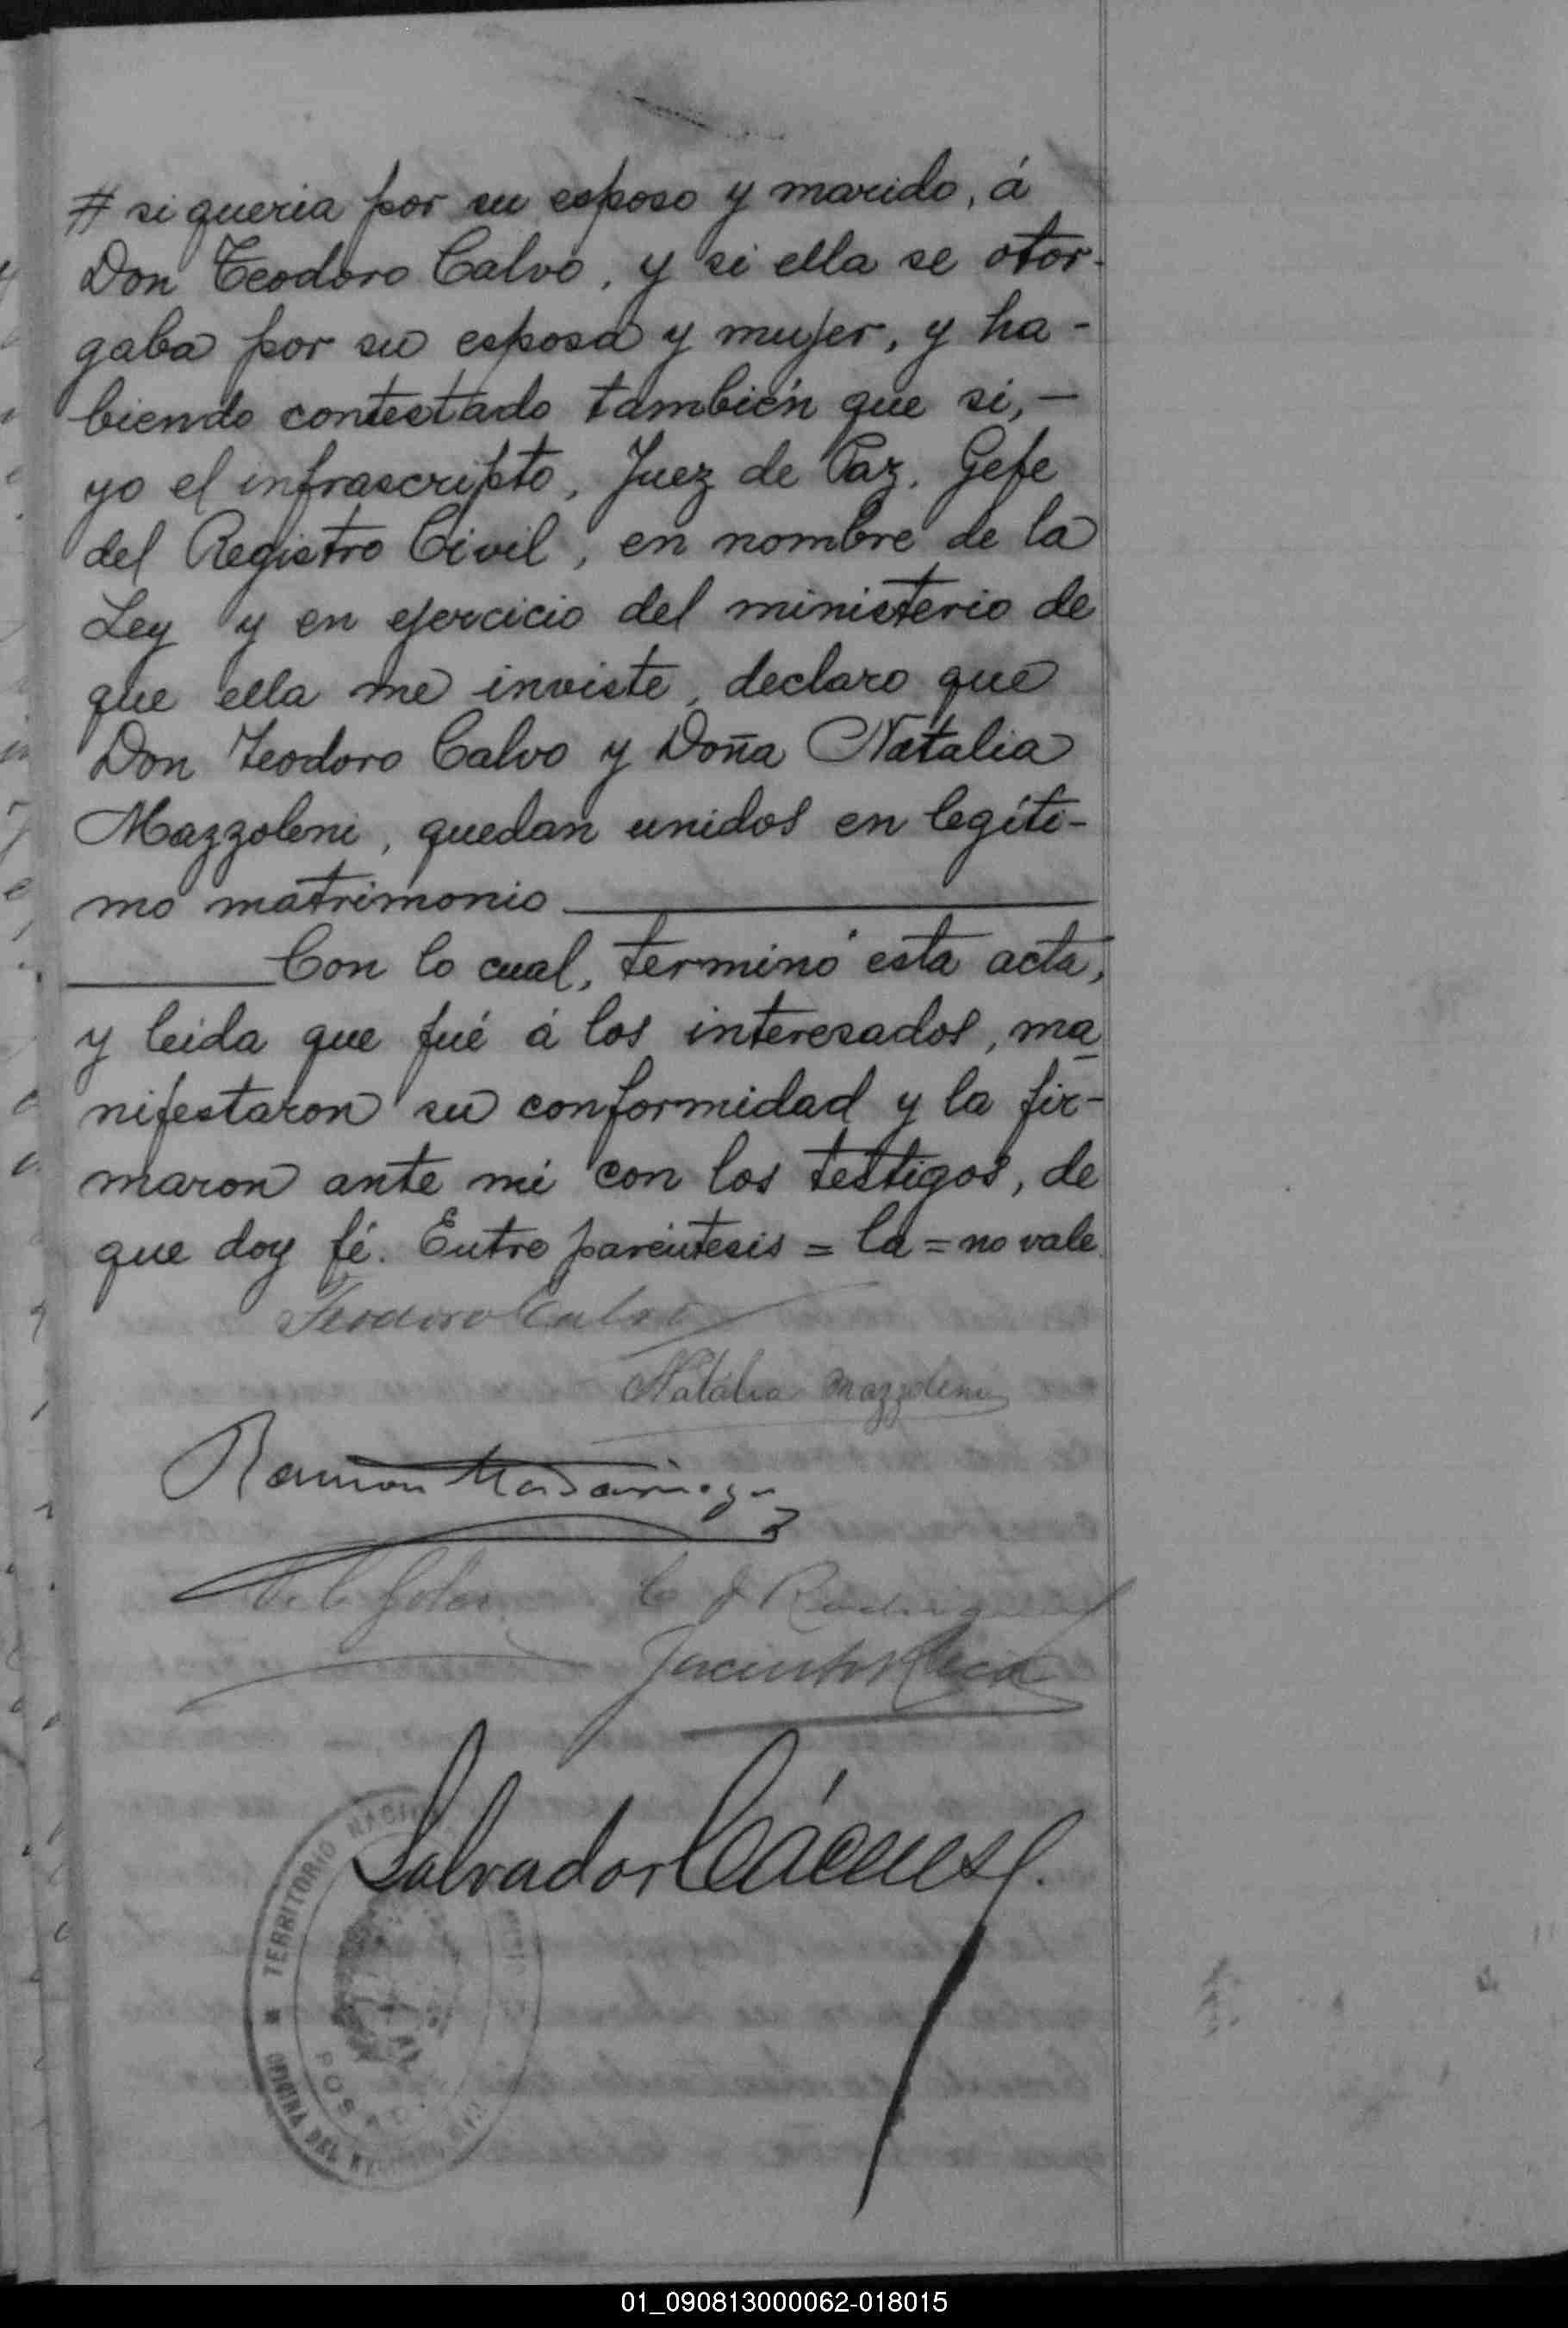 # si queria por su esposo y marido, á
Don Teodoro Calvo, y si ella se otor-
gaba por su esposa y mujer, y ha-
biendo contestado también que si, —
yo el infrascripto, Juez de Paz, Gefe
del Registro Civil, en nombre de la
Ley y en ejercicio del ministerio de
que ella me inviste, declaro que
Don Teodoro Calvo y Doña Natalia
Mazzoleni, quedan unidos en legíti-
mo matrimonio
Con lo cual, terminó esta acta,
y leida que fué á los interesados, ma
nifestaron su conformidad y la fir-
maron ante mi con los testigos, de
que doy fé. Entre paréntesis = la = no vale
Teodoro Calvo
Natalia Mazzoleni
Ramon Madariaga
C J Rodriguez
Jacinto
Salvador Cáceres
TERRITORIO NACIO
OFICINA DEL
POSA
01_090813000062-018015